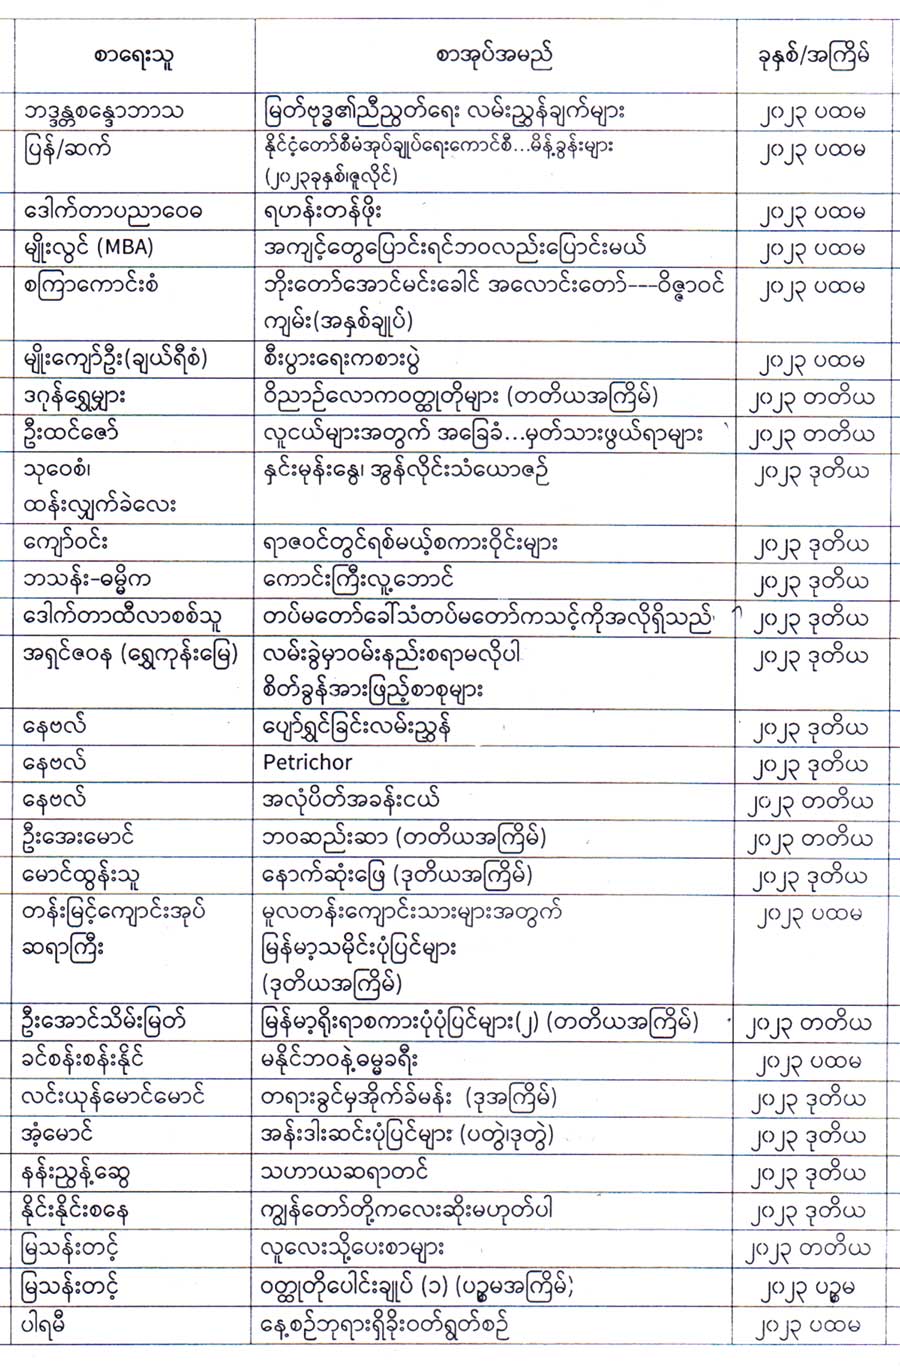 စာရေးသူ စာအုပ်အမည် ခုနှစ်/အကြိမ်
ဘဒ္ဒန္တစန္ဒောဘာသ မြတ်ဗုဒ္ဓ၏ညီညွတ်ရေး လမ်းညွှန်ချက်များ ၂၀၂၃ ပထမ
ပြန်/ဆက် နိုင်ငံ့တော်စီမံအုပ်ချုပ်ရေးကောင်စီ...မိန့်ခွန်းများ ၂၀၂၃ ပထမ
(၂၀၂၃ခုနှစ်၊ဇူလိုင်)
ဒေါက်တာပညာဝေဓ ရဟန်းတန်ဖိုး ၂၀၂၃ ပထမ
မျိုးလွင် (MBA) အကျင့်တွေပြောင်းရင်ဘဝလည်းပြောင်းမယ် ၂၀၂၃ ပထမ
စကြာကောင်းစံ ဘိုးတော်အောင်မင်းခေါင် အလောင်းတော်---ဝိဇ္ဇာဝင် ၂၀၂၃ ပထမ
ကျမ်း(အနှစ်ချုပ်)
မျိုးကျော်ဦး(ချယ်ရီစံ) စီးပွားရေးကစားပွဲ ၂၀၂၃ ပထမ
ဒဂုန်ရွှေမျှား ဝိညာဉ်လောကဝတ္ထုတိုများ (တတိယအကြိမ်) ၂၀၂၃ တတိယ
ဦးထင်ဇော် လူငယ်များအတွက် အခြေခံ...မှတ်သားဖွယ်ရာများ ၂၀၂၃ တတိယ
သုဝေစံ၊ နှင်းမုန်းနွေ၊ အွန်လိုင်းသံယောဇဉ် ၂၀၂၃ ဒုတိယ
ထန်းလျှက်ခဲလေး
ကျော်ဝင်း ရာဇဝင်တွင်ရစ်မယ့်စကားဝိုင်းများ ၂၀၂၃ ဒုတိယ
ဘသန်း-ဓမ္မိက ကောင်းကြီးလူ့ဘောင် ၂၀၂၃ ဒုတိယ
ဒေါက်တာထီလာစစ်သူ တပ်မတော်ခေါ်သံတပ်မတော်ကသင့်ကိုအလိုရှိသည် ၂၀၂၃ ဒုတိယ
အရှင်ဇဝန (ရွှေကုန်းမြေ) လမ်းခွဲမှာဝမ်းနည်းစရာမလိုပါ ၂၀၂၃ ဒုတိယ
စိတ်ခွန်အားဖြည့်စာစုများ
နေဗလ် ပျော်ရွှင်ခြင်းလမ်းညွှန် ၂၀၂၃ ဒုတိယ
နေဗလ် Petrichor ၂၀၂၃ ဒုတိယ
နေဗလ် အလုံပိတ်အခန်းငယ် ၂၀၂၃ တတိယ
ဦးအေးမောင် ဘဝဆည်းဆာ (တတိယအကြိမ်) ၂၀၂၃ တတိယ
မောင်ထွန်းသူ နောက်ဆုံးဖြေ (ဒုတိယအကြိမ်) ၂၀၂၃ ဒုတိယ
တန်းမြင့်ကျောင်းအုပ် မူလတန်းကျောင်းသားများအတွက် ၂၀၂၃ ပထမ
ဆရာကြီး မြန်မာ့သမိုင်းပုံပြင်များ
(ဒုတိယအကြိမ်)
ဦးအောင်သိမ်းမြတ် မြန်မာ့ရိုးရာစကားပုံပုံပြင်များ(၂) (တတိယအကြိမ်) ၂၀၂၃ တတိယ
ခင်စန်းစန်းနိုင် မနိုင်ဘဝနဲ့ဓမ္မခရီး ၂၀၂၃ ပထမ
လင်းယုန်မောင်မောင် တရားခွင်မှအိုက်ခ်မန်း (ဒုအကြိမ်) ၂၀၂၃ ဒုတိယ
အံ့မောင် အန်းဒါးဆင်းပုံပြင်များ (ပတွဲ၊ဒုတွဲ) ၂၀၂၃ ဒုတိယ
နန်းညွန့်ဆွေ သဟာယဆရာတင် ၂၀၂၃ ဒုတိယ
နိုင်းနိုင်းစနေ ကျွန်တော်တို့ကလေးဆိုးမဟုတ်ပါ ၂၀၂၃ ဒုတိယ
မြသန်းတင့် လူလေးသို့ပေးစာများ ၂၀၂၃ တတိယ
မြသန်းတင့် ဝတ္ထုတိုပေါင်းချုပ် (၁) (ပဉ္စမအကြိမ်) ၂၀၂၃ ပဉ္စမ
ပါရမီ နေ့စဉ်ဘုရားရှိခိုးဝတ်ရွတ်စဉ် ၂၀၂၃ ပထမ